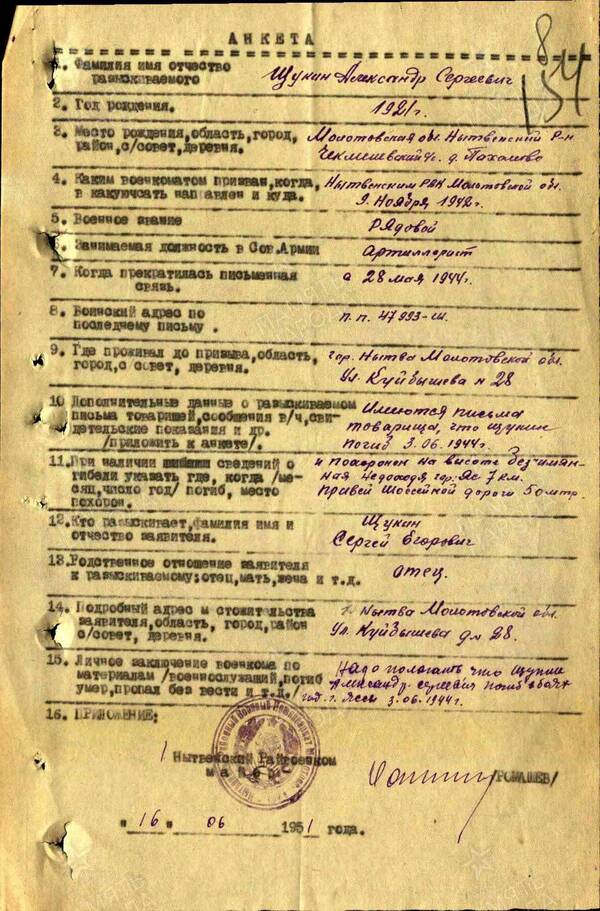 АНКЕТА
8
154
1. Фамилия имя отчество
разыскиваемого
Щукин Александр Сергеевич
2. Год рождения.
1921г.
3. Место рождения,область,город,
район,с/совет,деревня.
Молотовская обл. Нытвенский р-н
д. Пахомово
4. Каким военкоматом призван,когда,
в какуючсать направлен и куда.
Нытвенским РВК Молотовской обл.
9. Ноября 1942г.
5. Военное звание
Рядовой
6. Занимаемая должность в Сов.Армии
артиллерист
7. Когда прекратилась письменная
связь.
с 28 мая 1944г.
8. Воинский адрес по
последнему письму.
п.п. 47993-ш.
9. Где проживал до призыва,область,
город,с совет, деревня.
гор. Нытва Молотовской обл.
ул. Куйбышева н 28
10 Дополнительные данные о разыскиваемом
письма товарищей,сообщения в/ч,сви-
детельские показания и др.
/приложить к анкете/.
Имеются письма
товарища, что Щукин
погиб 3.06.1944г.
11.При наличии сведений о
гибели указать где, когда /ме-
сяц,число год/ погиб, место
похорон.
и похоронен на высоте Безимян-
ная недоходя гор. Яс 7 км.
правей шоссейной дороги 50 мтр.
12.Кто разыскивает,фамилия имя и
отчество заявителя.
Щукин
Сергей Егорович
13.Родственное отношение заявителя
к разыскиваемому:отец,мать,жена и т.д.
отец.
14. Подробный адрес м стожительства
заявителя,область, город,район
с/совет, деревня.
г. Нытва Молотовской обл.
ул. Куйбышева дм 28.
15. Личное заключение военкома по
материалам /военнослужащий,погиб
умер,пропал без вести и т.д./
Надо полагать что Щукин
Александр Сергеевич погиб в боях
под г. Яссы 3.06.1944г.
16. ПРИЛОЖЕНИЕ:
1
Нытвенский Райвоенком
майор
/РОМАШЕВ/
" 16 " 06 1951 года.